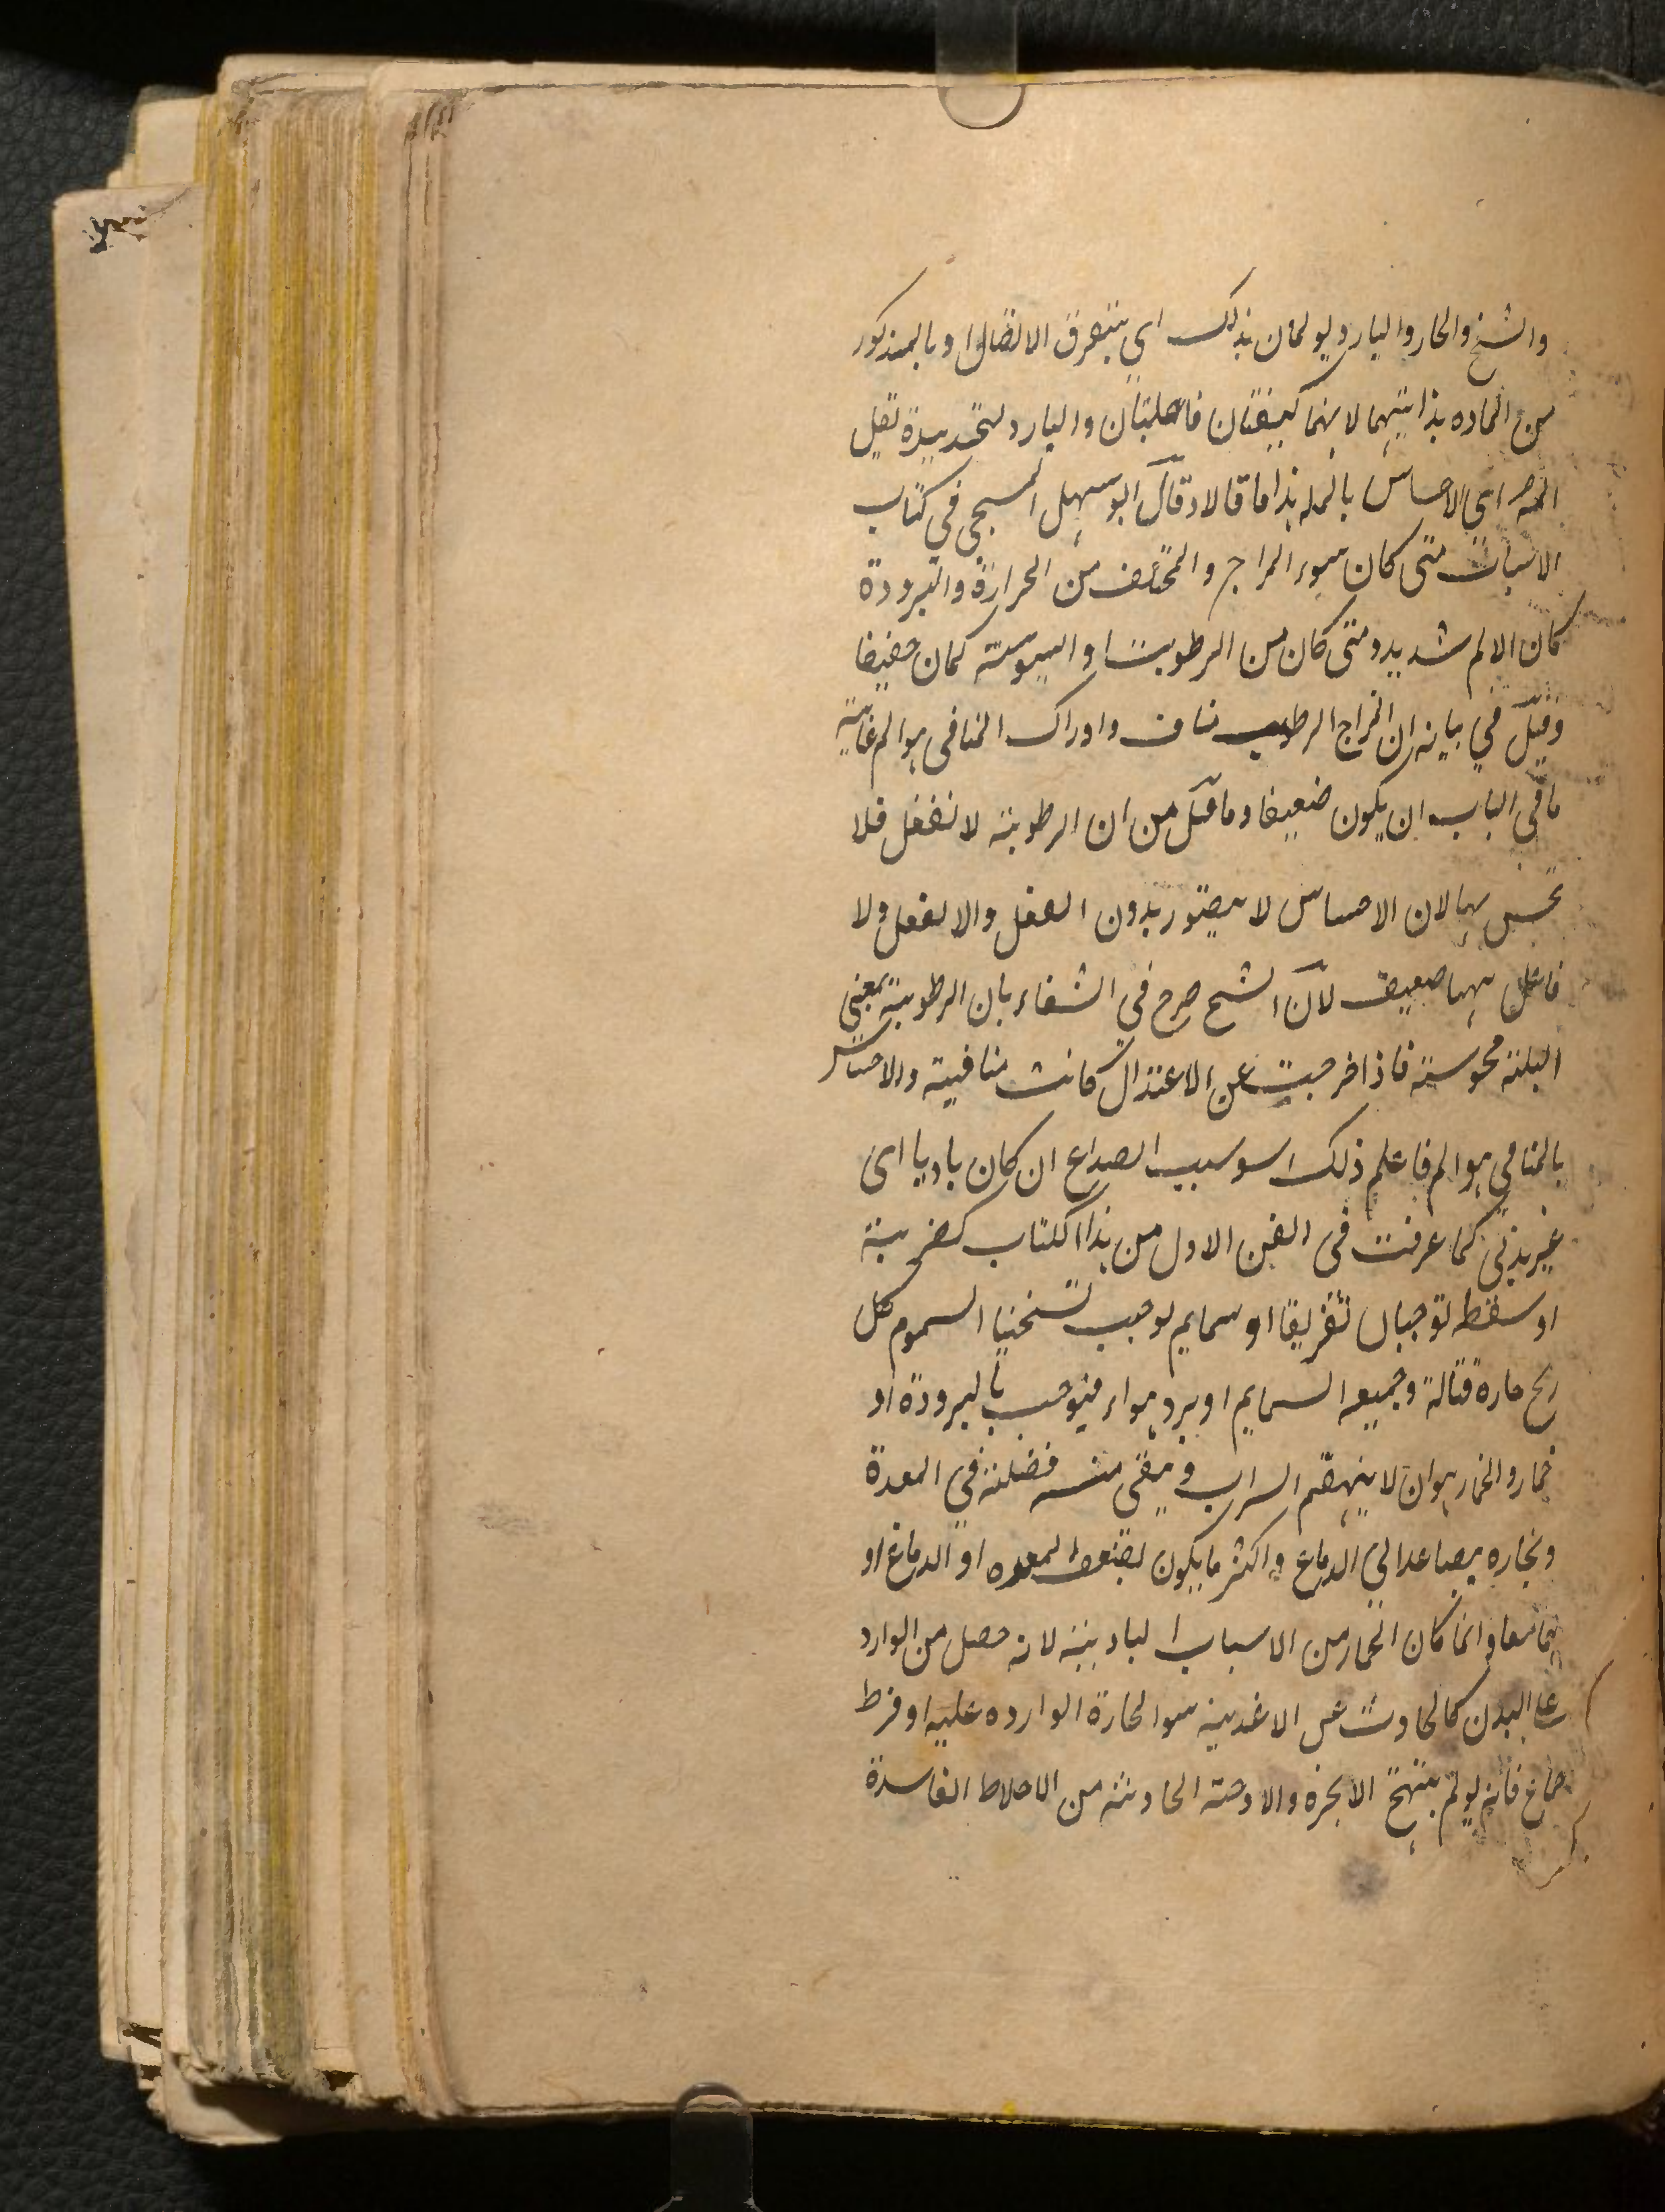 والشيخ والحار والبارد يولمان بذلك اى بتفرق الاتصال او بالمذكور
من الماده بذاتيهما لانهما كيفيتان فاعلتان والبارد لتخديره تقل
اى الاحساس بالم هذا ما قالا وقال ابو سهل المسيحى في كتاب
الاسباب متى كان سوء المزاج والمختلف من الحرارة والبرودة
كان الالم شديد ومتى كان من الرطوبة او اليبوسة كان خفيفا
وقيل في بيانه ان المزاج الرطب مناف وادراك المنافى هو الم غاية
ما في الباب ان يكون ضعيفا وما قيل من ان الرطوبة لا تفعل فلا
تحس بها لان الاحساس لا يتصور بدون الفعل والانفعل ولا
فاعل بهما ضعيف لان الشيخ صرح في الشفاء بان الرطوبة بمعنى
البلة محسوسة فاذا خرجت عن الاعتدال كانت منافية والاحساس
بالمنافي هو الم فاعلم ذلك سبب الصداع ان كان باديا اى
غير بدني كما عرفت في الفن الاول من هذا الكتاب كضربة
او سقطه توجبان تفريقا او سمايم توجب تسخينا السموم كل
ريح حارة قتالة وجميعه السمايم او برد هواء فيوجب بالبرودة او
خمار والخمار هو ان لا ينهضم الشراب ويبقى منه فضلة في المعدة
وبخاره يصاعد الي الدماغ واكثر ما يكون لضعف المعده او الدماغ او
هما معا وانما كان الخمار من الاسباب البادية لانه حصل من الوارد
على البدن كالحادث عن الاغذية الحارة الوارده عليه او فرط
جماع فانه يولم بتهيج الابخره والادخنة الحادثة من الاخلاط الفاسدة